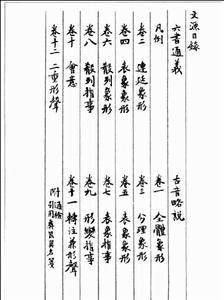 文源目錄
六書通義　古音略說
凡例　卷一　全體象形
卷二　連延象形　卷三　分理象形
卷四　表象象形　卷五　表象象形
卷六　殽列象形　卷七　表象指事
卷八　殽列指事　卷九　形變指事
卷十　會意　卷十一　轉注兼形聲
卷十二　二重形聲　附　通檢
引用彝器異名箋